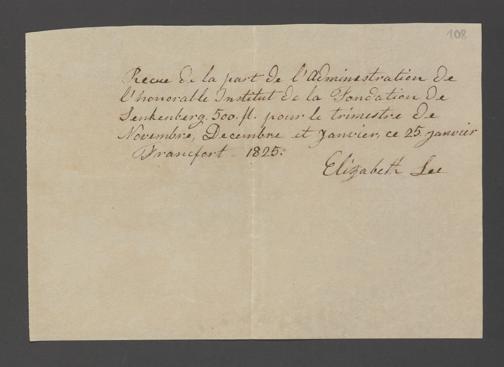 108
Recue de la part de l'Administration de
l'honorable Institut de la Fondation de
Senkenberg. 500.fl. pour le trimestre de
Novembre, Decembre et Janvier, ce 25 Janvier
Francfort 1825:
Elizabeth Lee